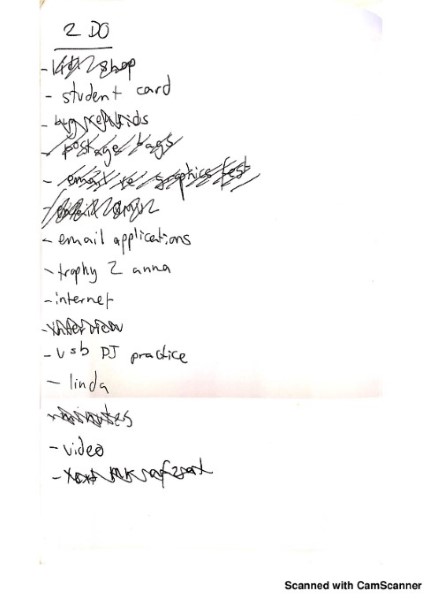 2 DO
- shop
- student card
- buy refunds
- postage bags
- email re graphics test
- email applications
- trophy 2 anna
- internet
- interview
- usb DJ practice
- linda
- minutes
- video
Scanned with CamScanner